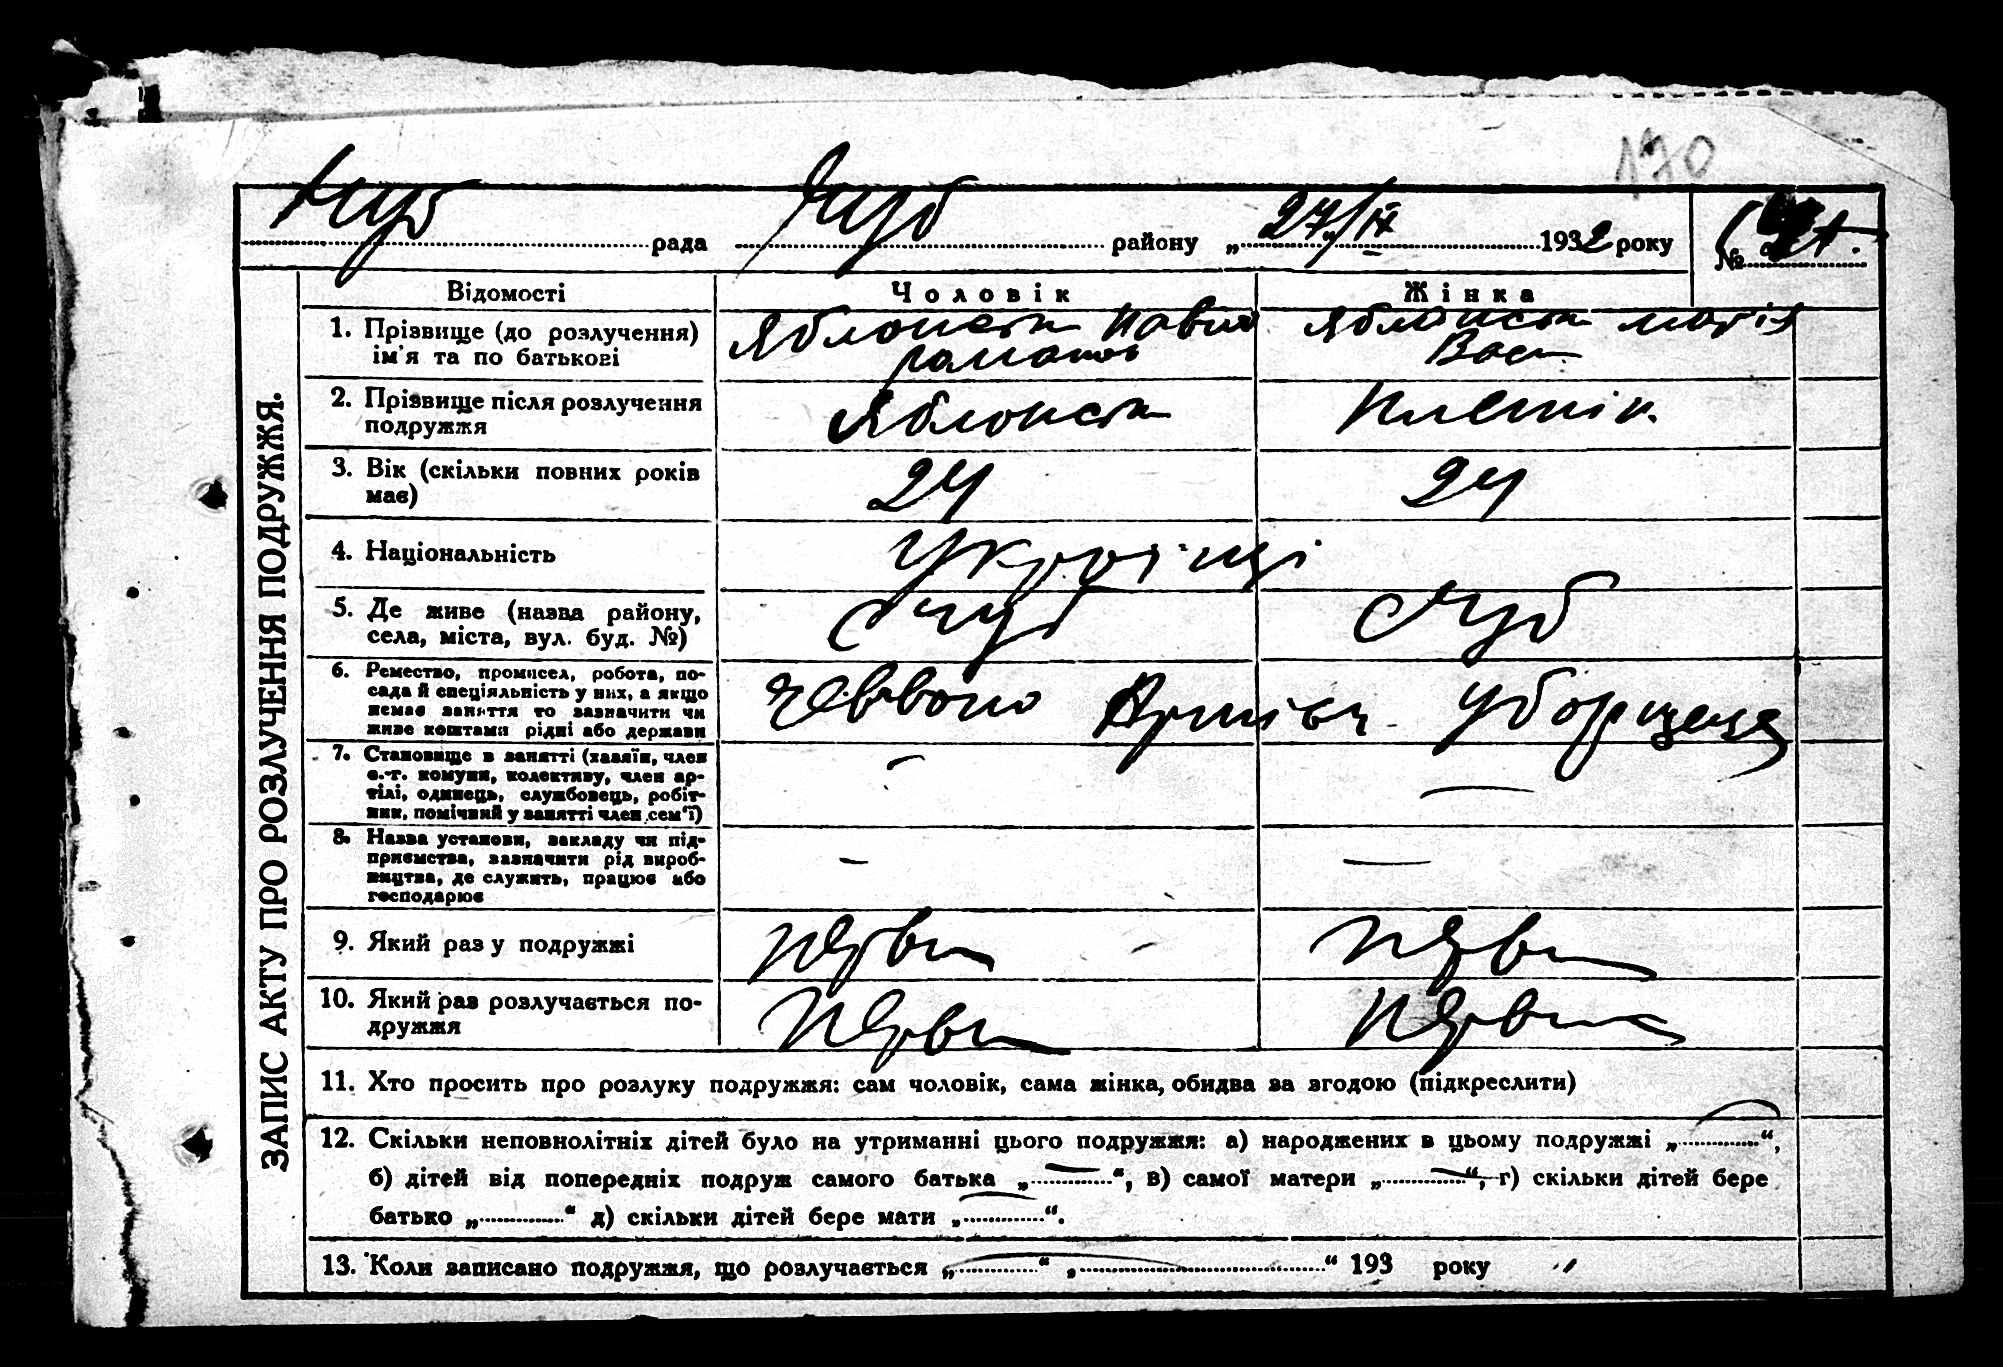 170
Чуб рада Чуб районy „27/IX 1932 року №
ЗАПИС АКТУ ПРО РОЗЛУЧЕННЯ ПОДРУЖЖЯ.
Відомості Чоловік Жінка
1. Прізвище (до розлучення) Яблонськ Павло Яблонськ
ім'я та по батькові Романов Вас
2. Прізвище після розлучення
подружжя Яблонськ
3. Вік (скільки повних років
має) 24 24
4. Національність Українці
5. Де живе (назва району,
села, міста, вул. буд. №) с Чуб с Чуб
6. Ремество, промисел, робота, по-
сада й спеціяльність у них, а якщо
немає заняття то зазначити чи
живе коштами рідні або держави Червоно Армієц Уборщеця
7. Становище в занятті (хазяїн, член
с.-г. комуни, колективу, член ар-
тілі, одинець, службовець, робіт-
ник, помічний у занятті член сем'ї) - —
8. Назва установи, закладу чи під-
приємства, зазначити рід вироб-
ництва, де служить, працює або
господарює - —
9. Який раз у подружжі Перви Перви
10. Який раз розлучається по-
дружжя Перви Перви
11. Хто просить про розлуку подружжя: сам чоловік, сама жінка, обидва за згодою (підкреслити)
12. Скільки неповнолітніх дітей було на утриманні цього подружжя: а) народжених в цьому подружжі „—“,
б) дітей від попередніх подруж самого батька „—“, в) самої матери „—“, г) скільки дітей бере
батько „—“ д) скільки дітей бере мати „—“.
13. Коли записано подружжя, що розлучається „—“ „—“ 193 року